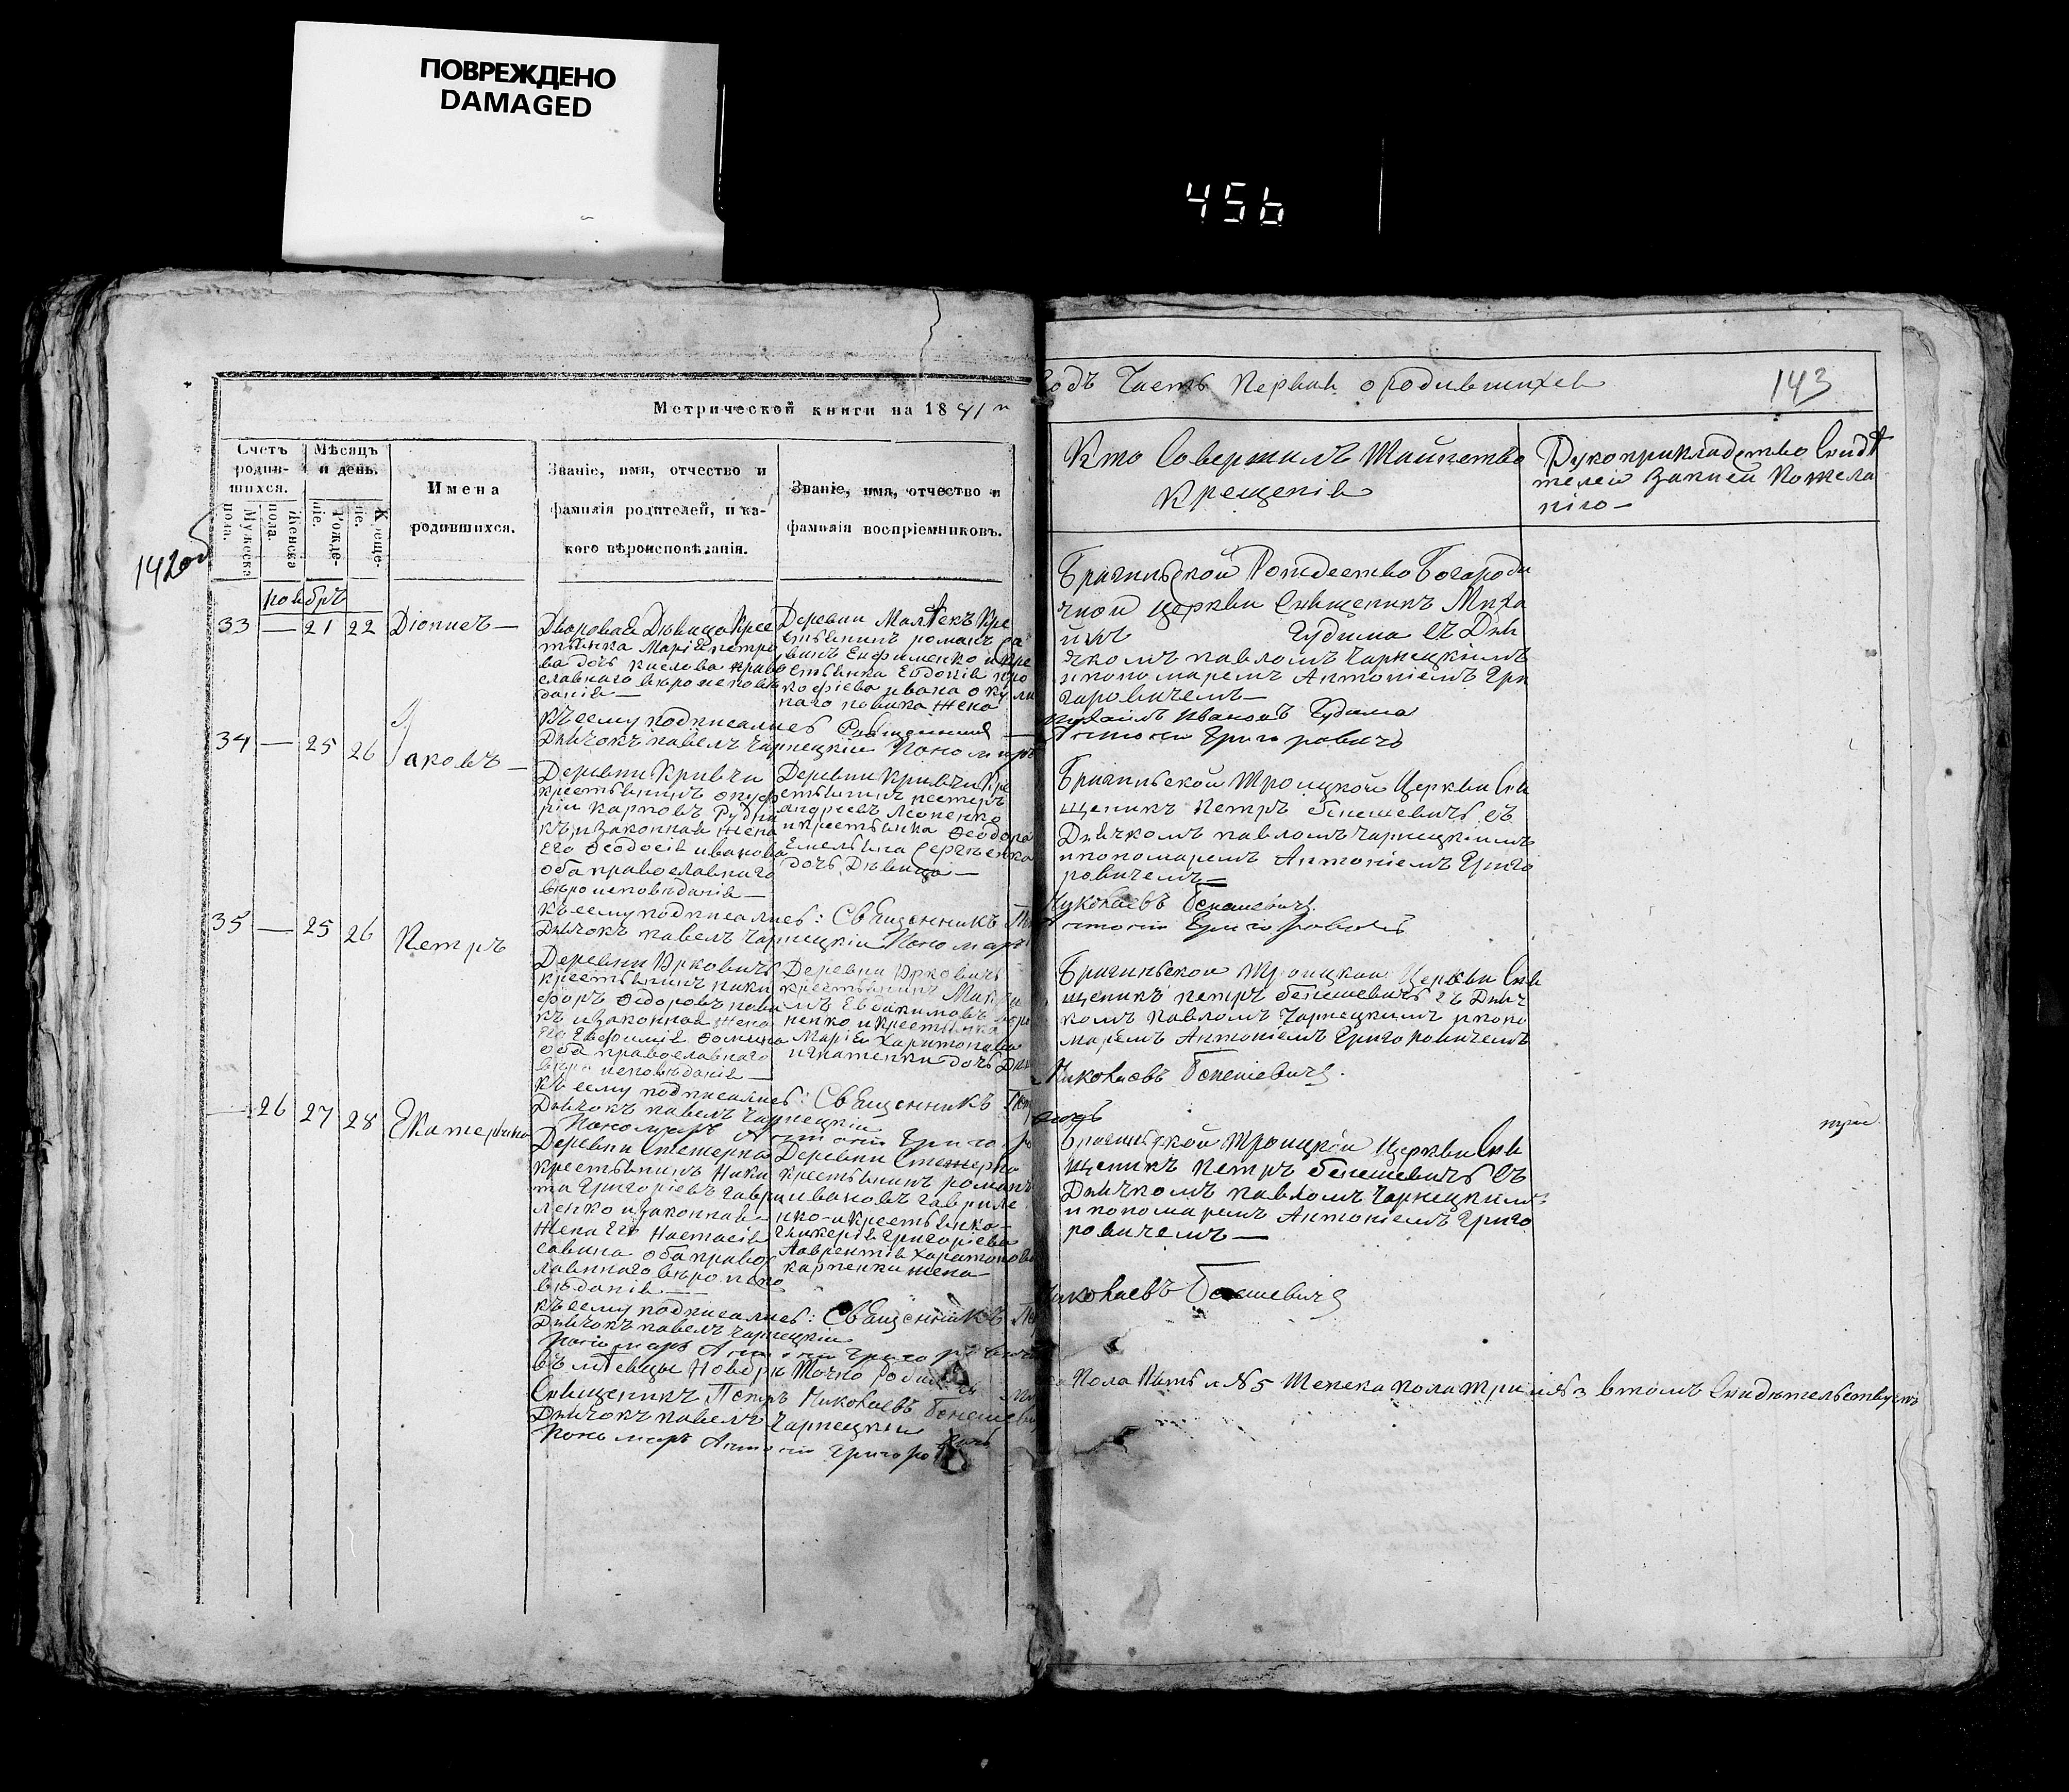 ПОВРЕЖДЕНО
DAMAGED
456
Метрической книги на 1841
годъ Часть Первая о родившихся
143
142об
Счетъ родив-
шихся.
Мужеска пола.
Женска пола.
Мѣсяцъ и день.
Рожде-
ніе.
Креще-
ніе.
Имена
родившихся.
Званіе, имя, отчество и
фамилія родителей, и ка-
кого вѣроисповѣданія.
Званіе, имя, отчество и
фамилія воспріемниковъ.
Кто Совершилъ Таинство
Крещенія
Рукоприкладство Свидѣ
телей записи по жела
нію
ноябрь
33 — 21 22 Діонисъ —
Дворовая Дѣвица Крес
тьянка Марія Петро
ва дочь Кислова право
славного вѣроисповѣ
данія —
Деревни Малѣекъ Кре
стьянинъ романъ
Евфименко и кре
стьянка Евдокія про
кофіева ивана
новика жена
Брагинской Рождество Богороди
чной церкви Священикъ Миха
илъ Гудима съ Дья
чкомъ павломъ Чарнецкимъ
и пономаремъ Антоніемъ Гри
горовичемъ —
къ сему подписались Священникъ Михаилъ Ивановъ Гудима
Дьячокъ павелъ Чарнецкій Пономарь Антоній Григоровичъ
34 — 25 26 Іаковъ —
Деревни Кривчи
крестьянинъ онуф
рій Карповъ Рудни
къ и законная жена
Его Феодосія иванова
оба православнаго
вѣроисповѣданія —
Деревни Кривчи Кре
стьянинъ нестеръ
андреевъ Леоненко
и крестьянка Феодора
Емельяна Сергѣенка
дочь Дѣвица —
Брагинской Троицкой Церкви Свя
щеникъ Петръ бенешевичъ съ
Дьячкомъ павломъ Чарнецкимъ
и пономаремъ Антоніемъ Григо
ровичемъ —
къ сему подписались: Священникъ Петръ Николаевъ Бенешевичъ
Дьячокъ павелъ Чарнецкій Пономарь Антоній Григоровичъ
35 — 25 26 Петръ
Деревни Юрковичъ
крестьянинъ ники
форъ Федоровъ нови
къ и законная жена
Его Евфимія Фомина
оба православнаго
вѣроисповѣданія —
Деревни Юрковичъ
крестьянинъ
Евдокимовъ
ненко и крестьянка
Марія Харитонова
игнатенки дочь
Брагинской Троицкой Церкви Свя
щеникъ петръ бенешевичъ съ Дьяч
комъ павломъ Чарнецкимъ и поно
маремъ Антоніемъ Григоровичемъ
къ сему подписались: Священникъ Петръ Николаевъ Бенешевичъ
Дьячокъ павелъ Чарнецкій
Пономарь Антоній Григоровичъ
— 26 27 28 Екатерина
Деревни Стежерна
крестьянинъ Ники
та Григоріевъ гаври
ленко и законная
жена Его Настасія
савина оба правос
лавнаго вѣроиспо
вѣданія —
Деревни Стежерна
крестьянинъ романъ
ивановъ гавриле
нко и крестьянка
Гликерія Григоріева
Лаврентія Харитонова
карпенки жена
Брагинской Троицкой Церкви Свя
щеникъ Петръ бенешевичъ съ
Дьячкомъ павломъ Чарнецкимъ
и пономаремъ Антоніемъ Григо
ровичемъ —
къ сему подписались: Священникъ Петръ Николаевъ Бенешевичъ
Дьячокъ павелъ Чарнецкій
Пономарь Антоній Григоровичъ
въ мѣсяцы Ноябрѣ Точно пола пять и №5 женска пола три и №3 в томъ Свидѣтельствуемъ
Священикъ Петръ Николаевъ Бенешевичъ
Дьячокъ павелъ Чарнецкій
Пономарь Антоній Григоровичъ